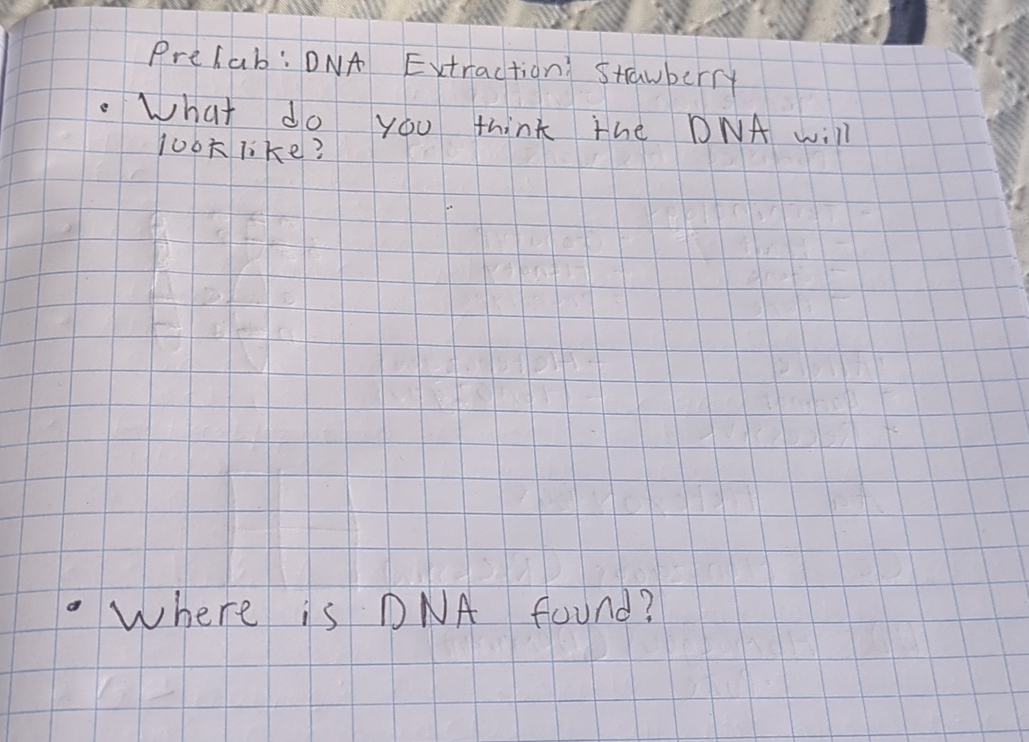 Prelab: DNA Extraction: Strawberry
• What do you think the DNA will
look like?
• Where is DNA found?